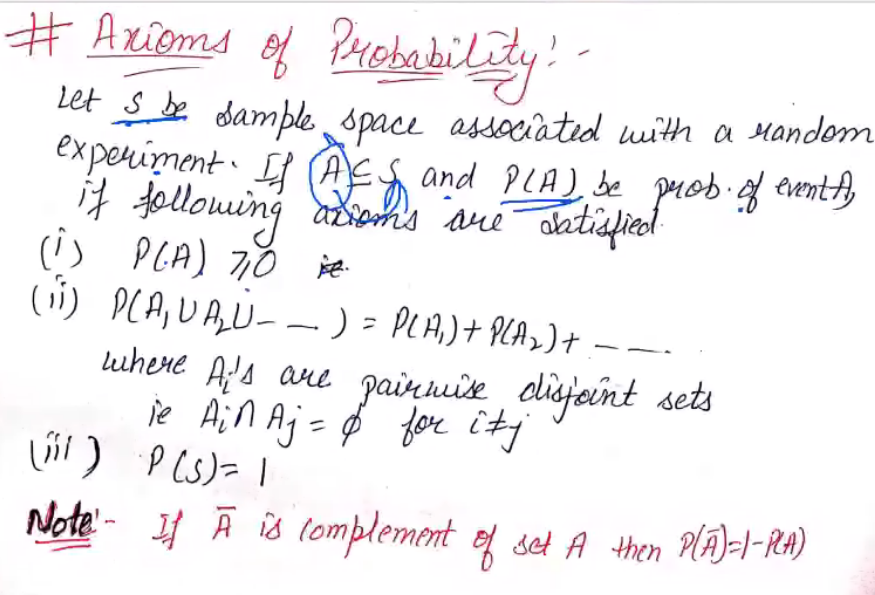 # Axioms of Probability:-
Let S be sample space associated with a random
experiment. If A⊆S and P(A) be prob. of event A,
if following axioms are satisfied.
(i) P(A) ≥ 0
(ii) P(A₁∪A₂∪- — ) = P(A₁)+P(A₂)+ — —.
where Aᵢ's are pairwise disjoint sets
ie Aᵢ∩Aⱼ = φ for i≠j
(iii) P(S)= 1
Note:- If Ā is complement of set A then P(Ā)=1-P(A)